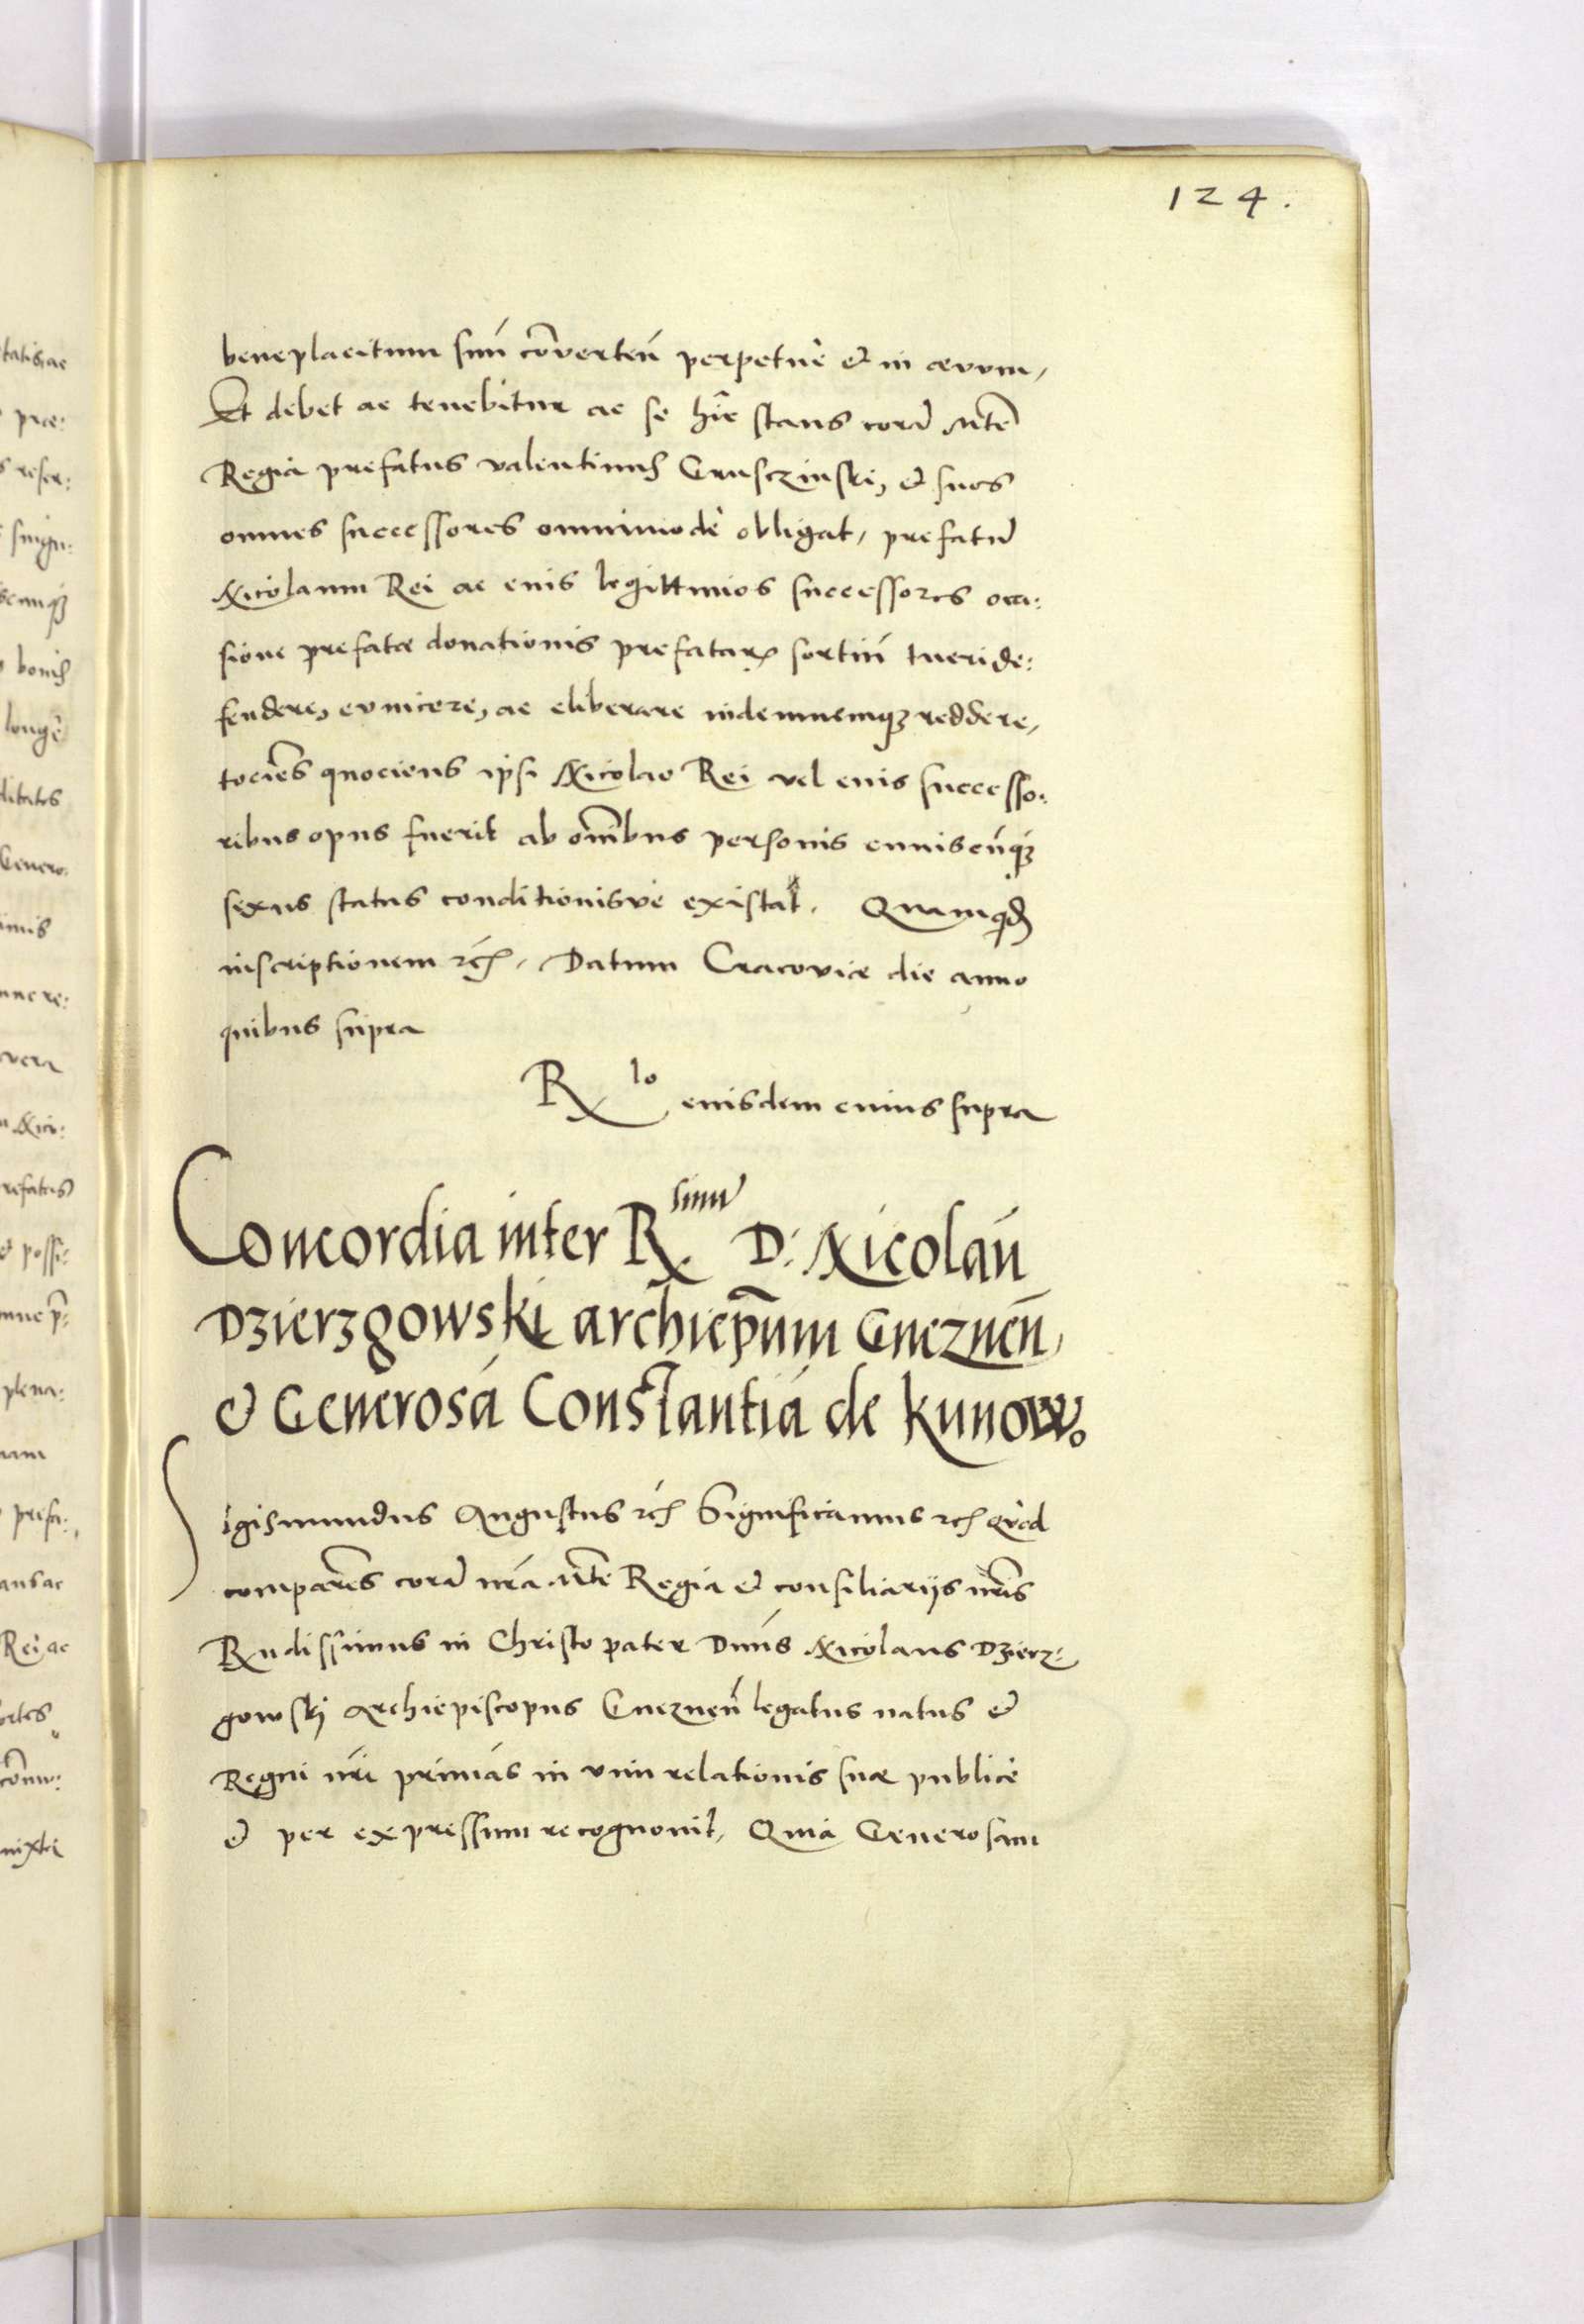 124.
beneplacitum suũ cõvertẽn perpetuè et in ævum,
Et debet ac tenebitur ac se hĩc stans corã Mte
Regia prefatus valentinus Gruszczinski, et suos
omnes successores omnimodè obligat, prefatũ
Nicolaum Rei ac eius legittimos successores occa:
sione prefatæ donationis prefatarum sortiũ tueri de:
fendere, evincere, ac eliberare indemnemque reddere,
tociẽs quociens ipsi Nicolao Rei vel eius successo:
ribus opus fuerit ab oĩnbus personis cuiuscũque
sexus status conditionisve existat. Quamquidem
inscriptionem etc. Datum Cracoviæ die anno
quibus supra
R lo eiusdem cuius supra
Concordia inter R simũ D: Nicolaũ
Dzierzgowski archiepũm Gneznen̄,
et Generosã Constantiã de Kunow.
Sigismundus Augustus etc. Significamus etc. Quòd
comparẽs corã nrã Mte Regia et consiliarijs nrĩs
Rndissimus in Christo pater Dnũs Nicolaus Dzierz:
gowskj Archiepiscopus Gneznen̄ legatus natus et
Regni nrĩ primas in vim relationis suæ publicè
et per expressum recognovit, Quia Generosam
tatis, ac
præ:
s reser:
singu:
bonis
longè
ditates
Genero:
nnc re:
vera
Nico:
refatus
et possi:
plena:
nam
prefa:
Rei ac